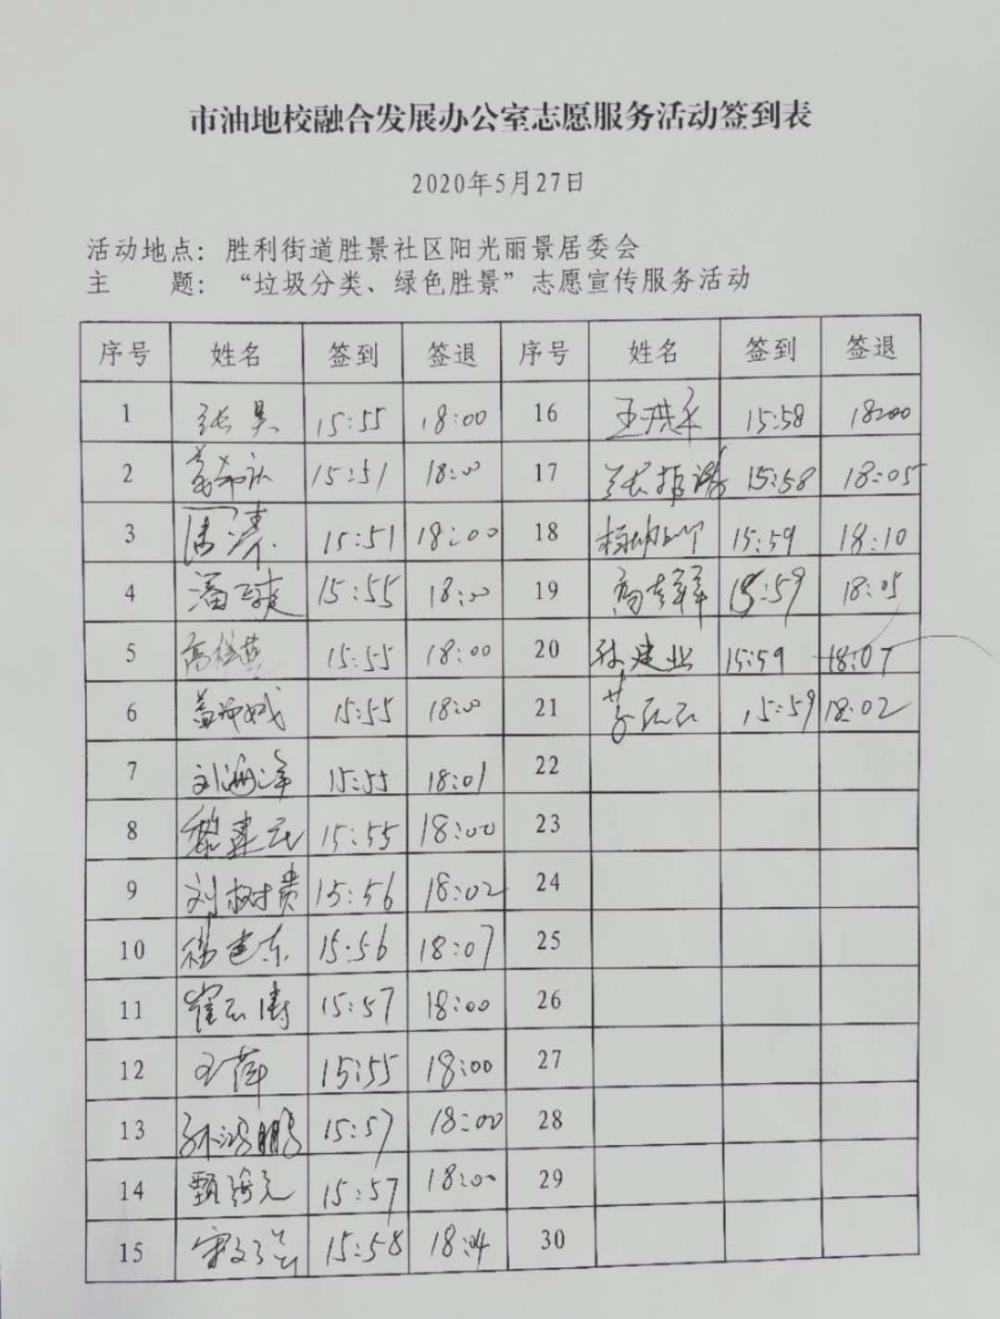 市油地校融合发展办公室志愿服务活动签到表
2020年5月27日
活动地点：胜利街道胜景社区阳光丽景居委会
主 题：“垃圾分类、绿色胜景”志愿宣传服务活动
序号 姓名 签到 签退 序号 姓名 签到 签退
1 张昊 15:55 18:00 16 王洪禾 15:58 18:00
2 15:51 18:00 17 15:58 18:05
3 15:51 18:00 18 15:59 18:10
4 潘 15:55 18:00 19 高 15:59 18:05
5 高 15:55 18:00 20 孙建业 15:59 18:07
6 15:55 18:00 21 15:59 18:02
7 刘海洋 15:55 18:01 22
8 黎建云 15:55 18:00 23
9 刘树贵 15:56 18:02 24
10 徐建东 15:56 18:07 25
11 崔云涛 15:57 18:00 26
12 王萍 15:55 18:00 27
13 孙鸿鹏 15:57 18:00 28
14 甄海元 15:57 18:00 29
15 15:58 18:04 30